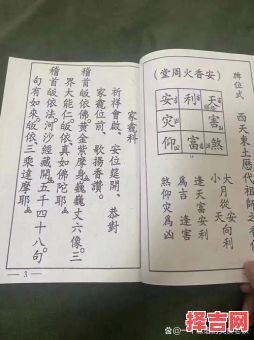 牌位式
西天東土歷代祖師之
(安香火周堂)
安 利 天
災 害
仰 富 煞
大 安向利
小月從天
逢天富安利
為吉 逢害
煞仰災為凶
家竈科
祈祥會啟、安位筵開、恭對
家竈位前、歌揚香讚、
稽首皈依佛。黃金紫摩身。巍巍丈六像。三
界大能仁。皈依真如佛陀耶
稽首皈依法。河沙經藏開。五千四十八。句
句有如來。皈依三乘達摩耶
3
择吉网